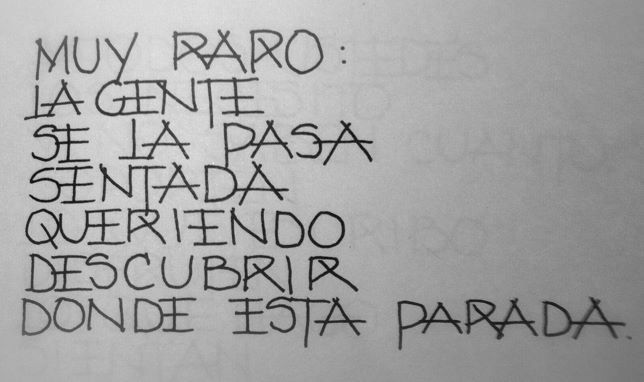 MUY RARO:
LA GENTE
SE LA PASA
SENTADA
QUERIENDO
DESCUBRIR
DONDE ESTA PARADA.